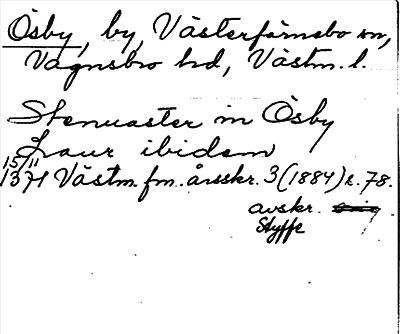 Ösby, by, Västerfärnebo sn,
Vagnsbro hd, Västm. l.
Stenuaster in Ösby
Laur ibidem
15/11
1371 Västm. fm. årsskr. 3 (1884) s. 78.
avskr.
Styffe